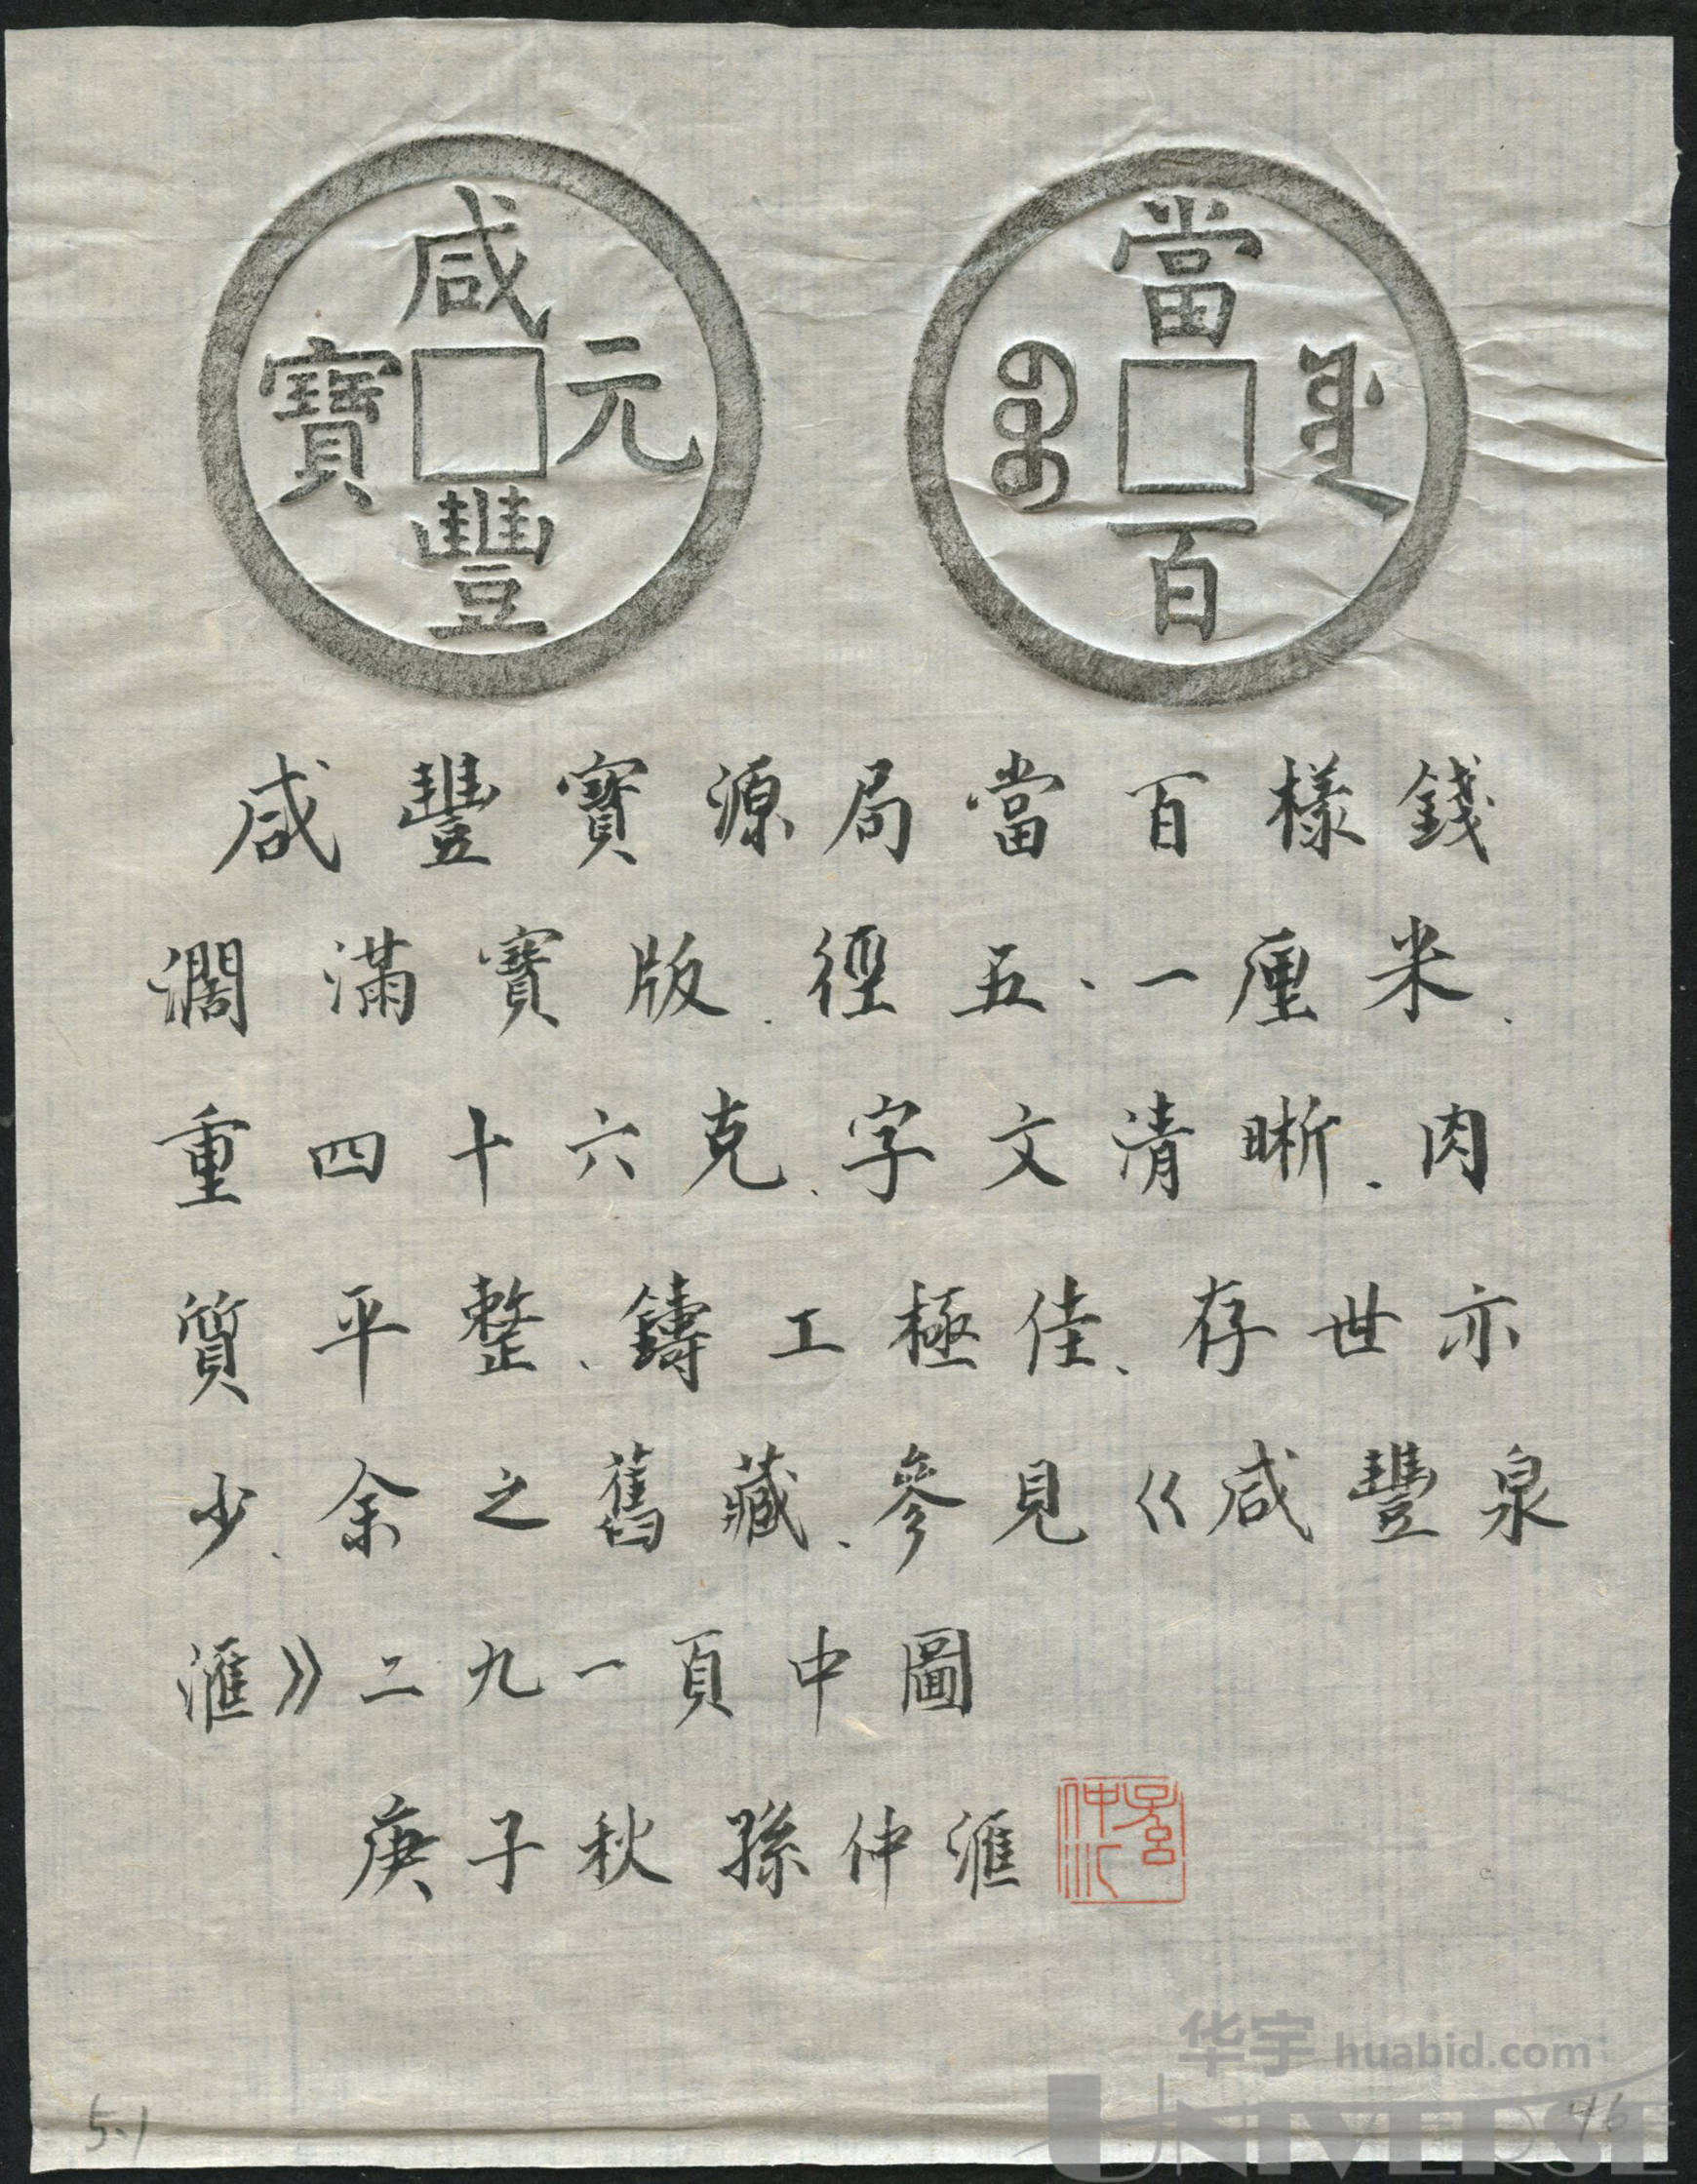 咸豐元寶
當百
咸豐寶源局當百樣錢
濶滿寶版.徑五、一厘米.
重四十六克.字文清晰.肉
質平整、鑄工極佳、存世亦
少、余之舊藏、參見《咸豐泉
滙》二九一頁中圖
庚子秋孫仲滙
华宇 huabid.com
UNIVERSE
5.1
46